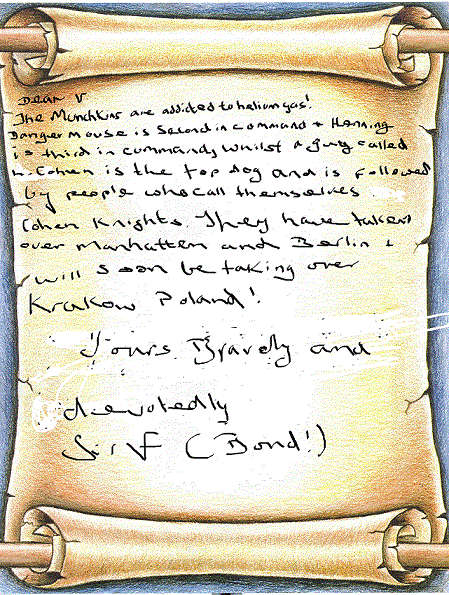 Dear V
The Munchkins are addited to helium gas!
Danger mouse is Second in command + Henning
is third in command, whilst a guy called
L. Cohen is the top dog and is followed
by people who call themselves
Cohen Knights. They have taken
over Manhatten and Berlin +
will soon be taking over
Krakow Poland!
Yours Bravely and
devotedly
Sir V (Bond!)